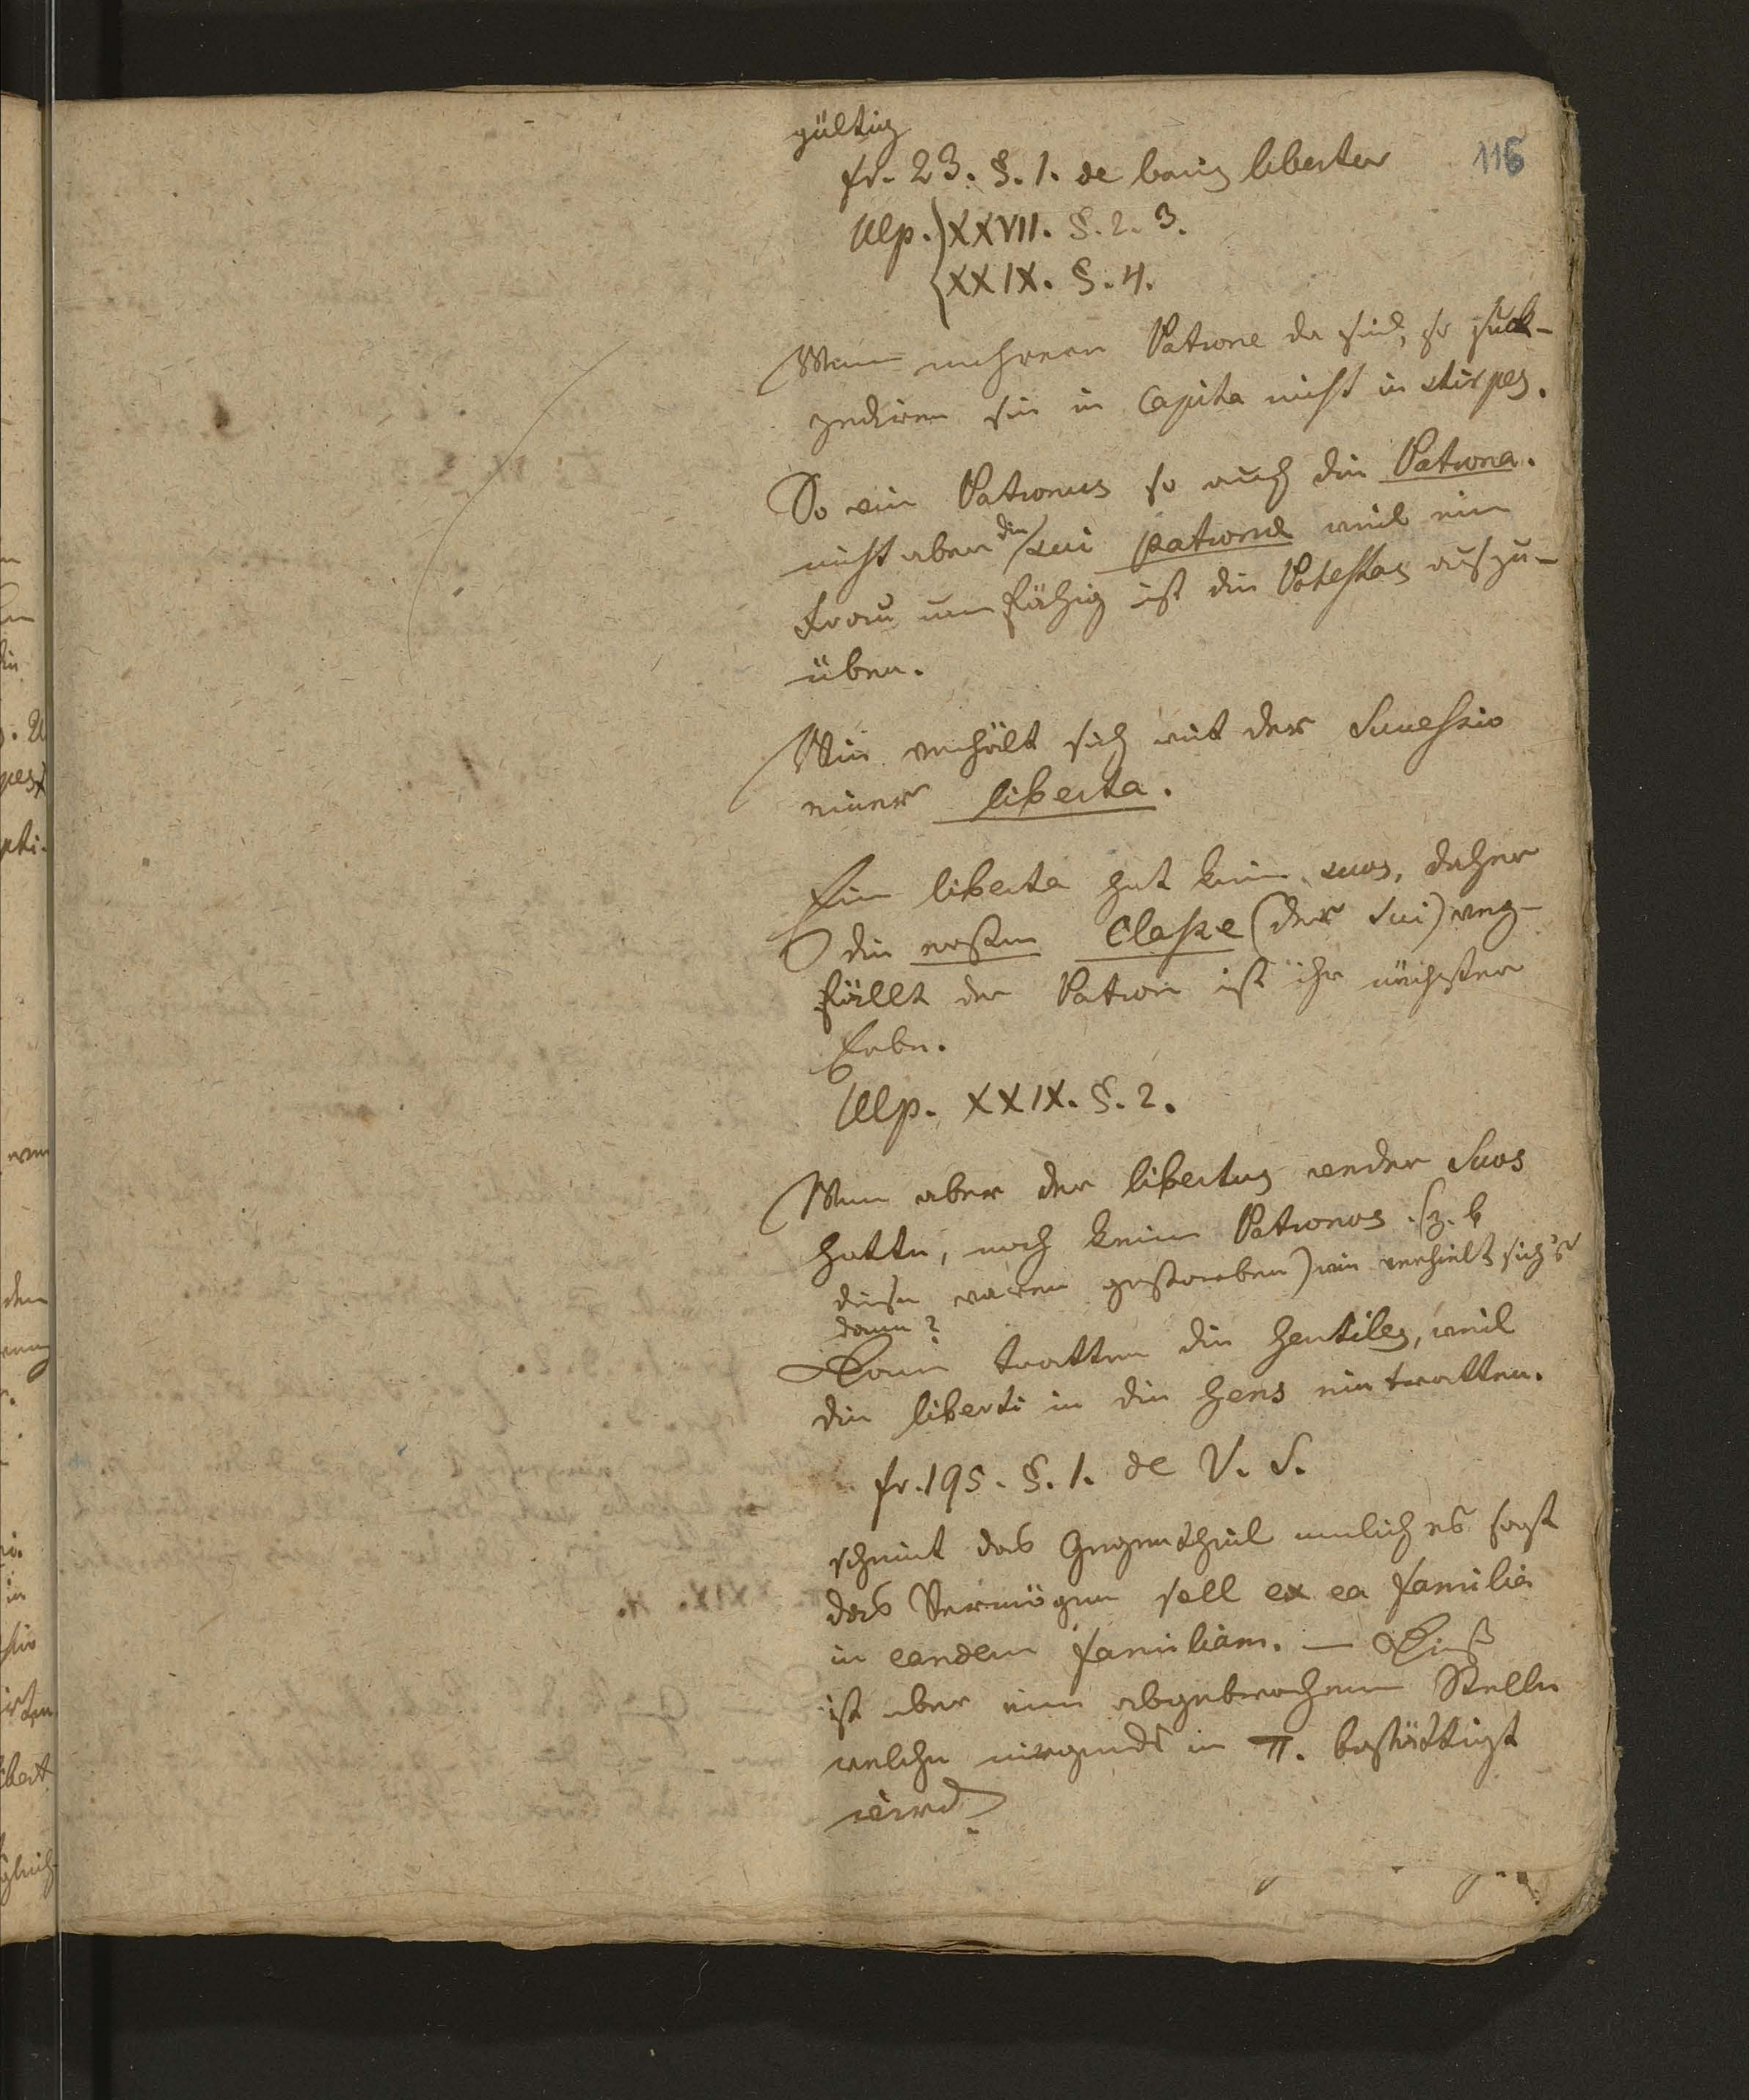 gültig
116
fr. 23. §. 1. de bonis libertor
Ulp. XXVII. §. 2. 3.
XXIX. §. 4.
Wenn mehrere Patrone da sind, so suck-
zediren sie in Capita nicht in stirpes.
So ein Patronus so auch die Patrona.
nicht aber die sui patronæ weil eine
Frau unfähig ist die Potestas auszu-
üben.
Wie verhält sich mit der Successio
einer liberta.
Eine liberta hat keine suos, daher
die ersten Classe (der Sui) weg-
fällt der Patron ist ihr nächster
Erbe.
Ulp. XXIX. §. 2.
Wenn aber der libertus weder Suos
hatte, noch keine Patronos (z. b
diese waren gestorben) wie verhielt sich's
dann?
Dann tratten die gentiles, weil
die liberti in die gens eintratten.
fr. 195. §. 1. de V. S.
scheint das Gegentheil nemlich es sagt
das Vermögen soll ex ea familia
in eandem familiam. — Dieß
ist aber eine abgebrochene Stelle
welche nirgends in π. bestättigt
wird.